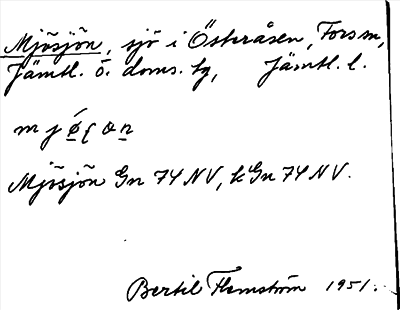 Mjösjön, sjö i Österåsen, Forsm,
Jämtl. ö. doms. tg, Jämtl. l.
Mjösjön Gn 74 NV, k Gn 74 NV.
Bertil Flemström 1951.